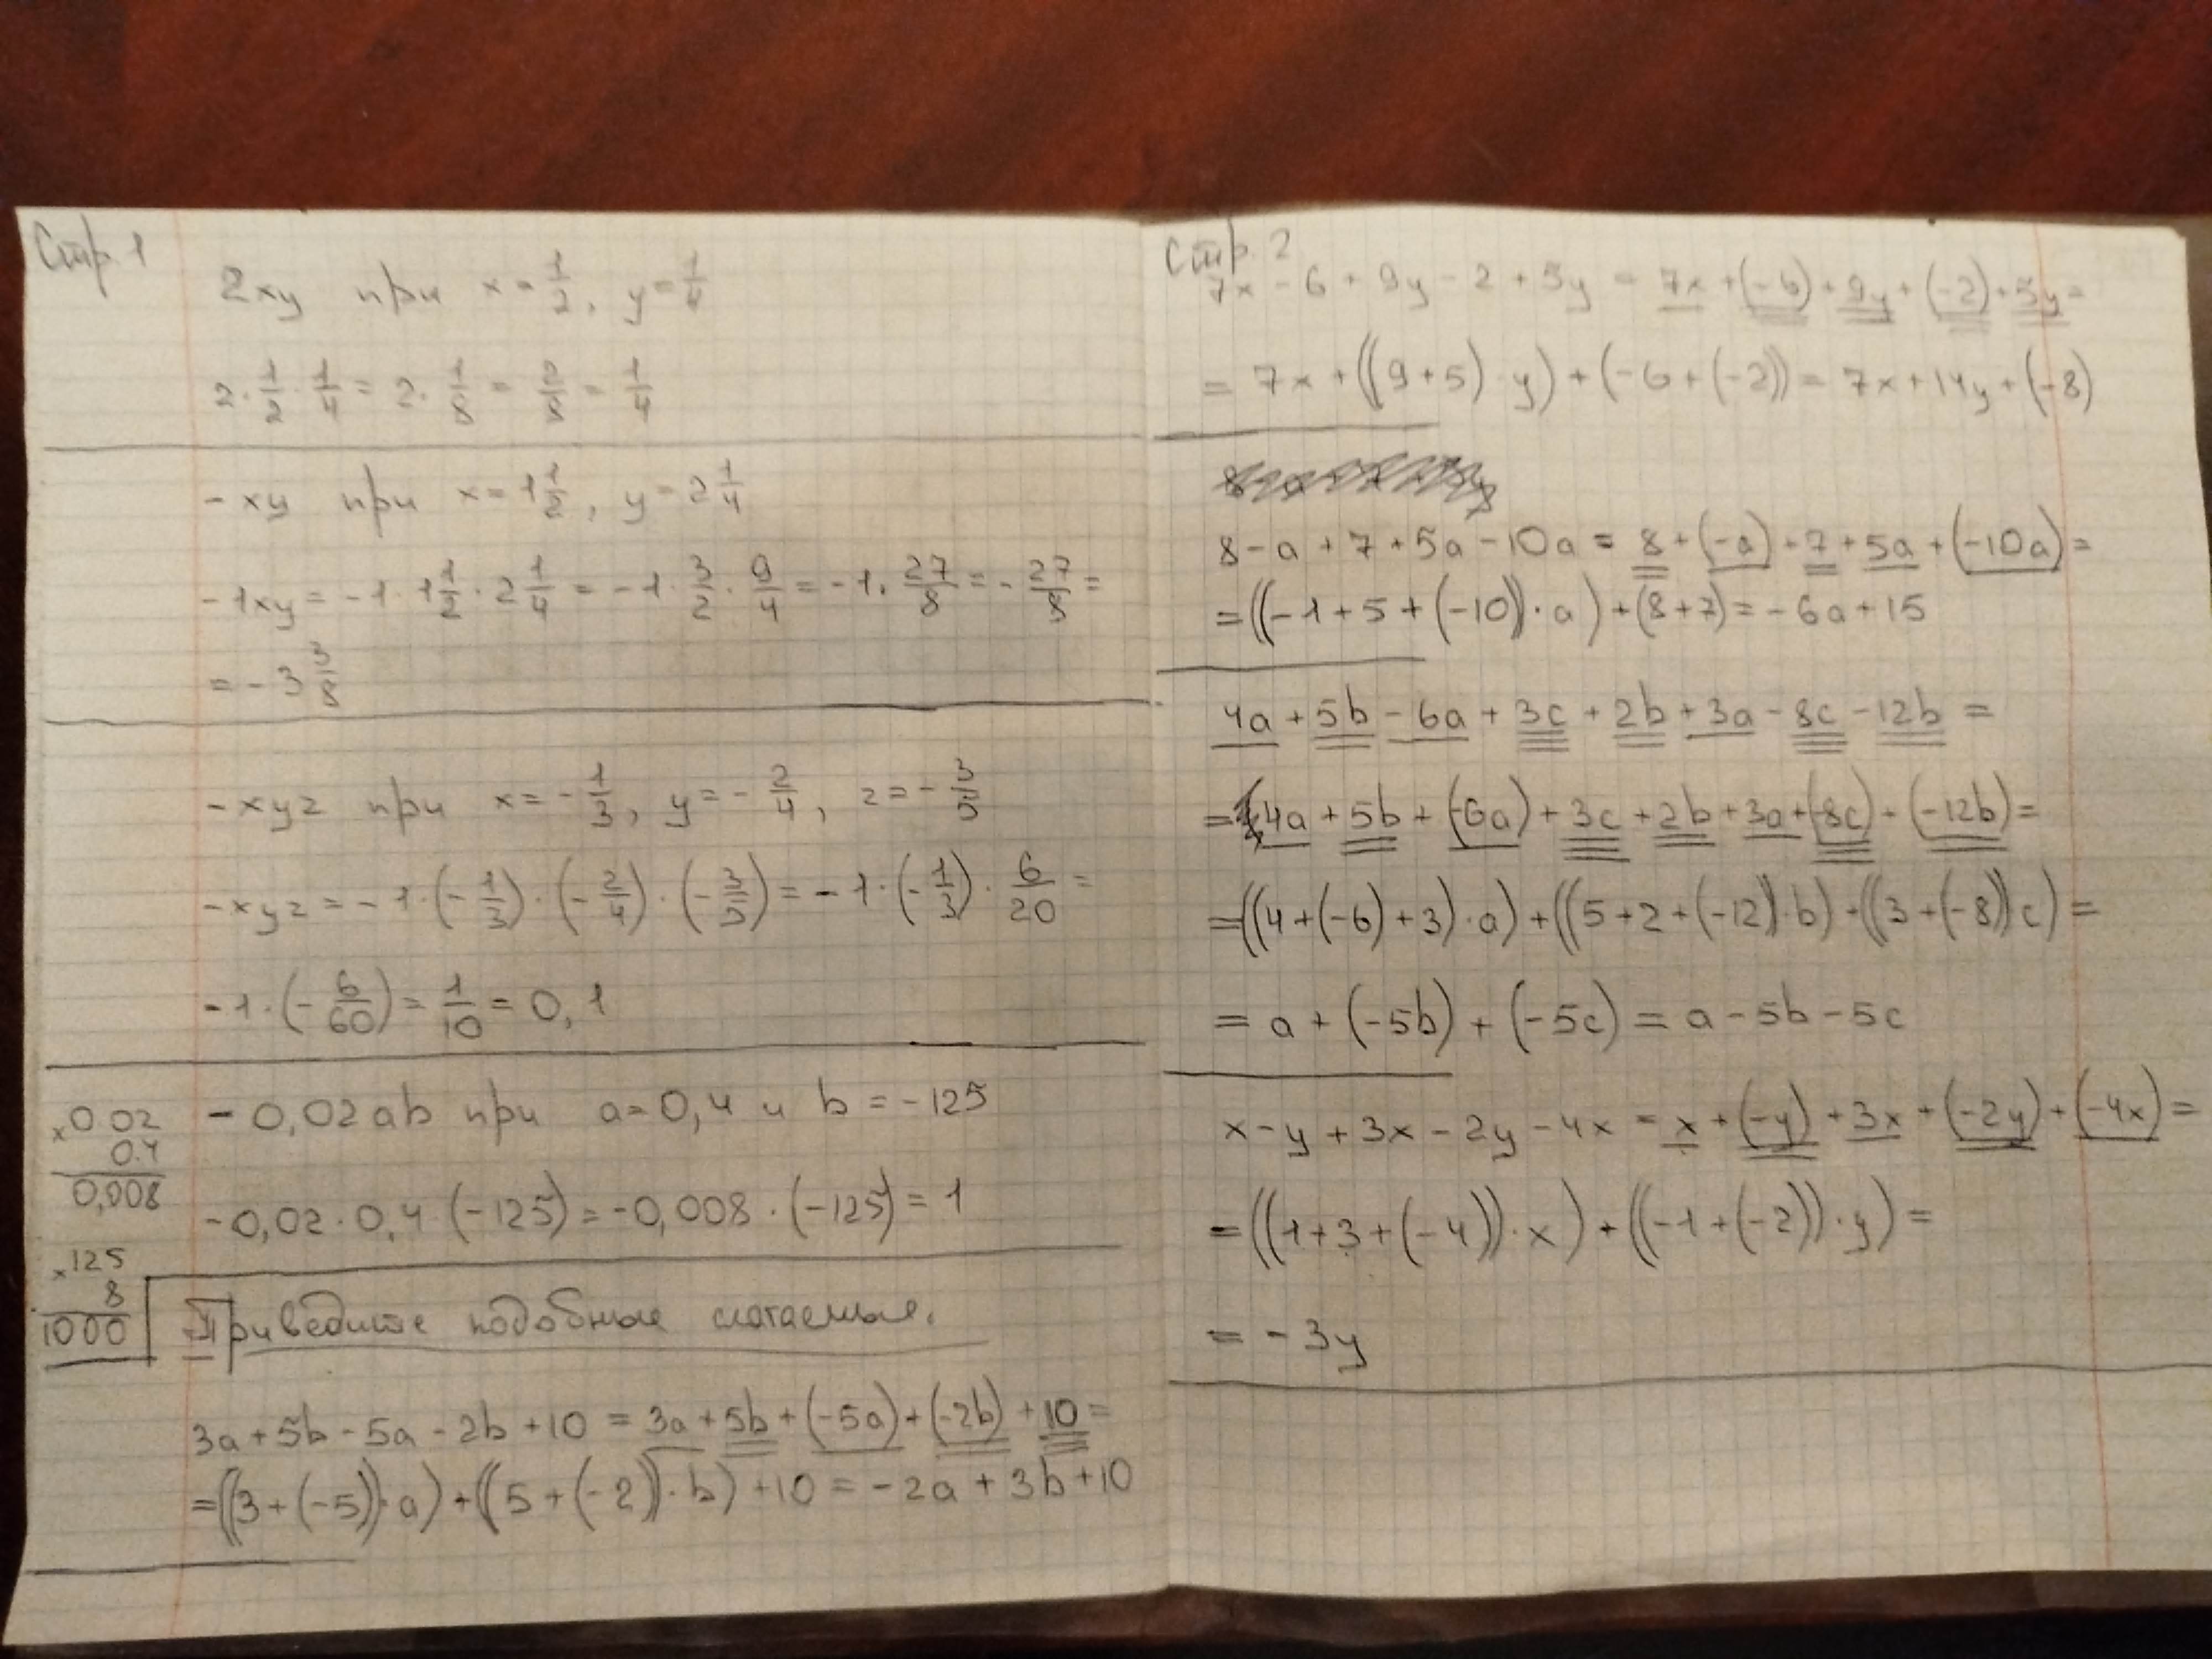 Стр. 1
2xy при x = 1/2, y = 1/4
2 · 1/2 · 1/4 = 2 · 1/8 = 2/8 = 1/4
- xy при x = 1 1/2, y = 2 1/4
- 1xy = - 1 · 1 1/2 · 2 1/4 = - 1 · 3/2 · 9/4 = - 1 · 27/8 = - 27/8 =
= - 3 3/8
- xyz при x = - 1/3, y = - 2/4, z = - 3/5
- xyz = - 1 · (- 1/3) · (- 2/4) · (- 3/5) = - 1 · (- 1/3) · 6/20 =
- 1 · (- 6/60) = 1/10 = 0,1
- 0,02ab при a = 0,4 и b = - 125
- 0,02 · 0,4 · (-125) = -0,008 · (-125) = 1
× 0 02
0.4
0,008
× 125
8
1000
Приведите подобные слагаемые.
3a + 5b - 5a - 2b + 10 = 3a + 5b + (-5a) + (-2b) + 10 =
= ((3 + (-5)) · a) + ((5 + (-2)) · b) + 10 = - 2a + 3b + 10
Стр. 2
7x - 6 + 9y - 2 + 5y = 7x + (-6) + 9y + (-2) + 5y =
= 7x + ((9 + 5) · y) + (-6 + (-2)) = 7x + 14y + (-8)
8 - a + 7 + 5a - 10a = 8 + (-a) + 7 + 5a + (-10a) =
= ((-1 + 5 + (-10)) · a) + (8 + 7) = - 6a + 15
4a + 5b - 6a + 3c + 2b + 3a - 8c - 12b =
= 4a + 5b + (-6a) + 3c + 2b + 3a + (-8c) + (-12b) =
= ((4 + (-6) + 3) · a) + ((5 + 2 + (-12)) · b) + ((3 + (-8)) c) =
= a + (-5b) + (-5c) = a - 5b - 5c
x - y + 3x - 2y - 4x = x + (-y) + 3x + (-2y) + (-4x) =
= ((1 + 3 + (-4)) · x) + ((-1 + (-2)) · y) =
= - 3y